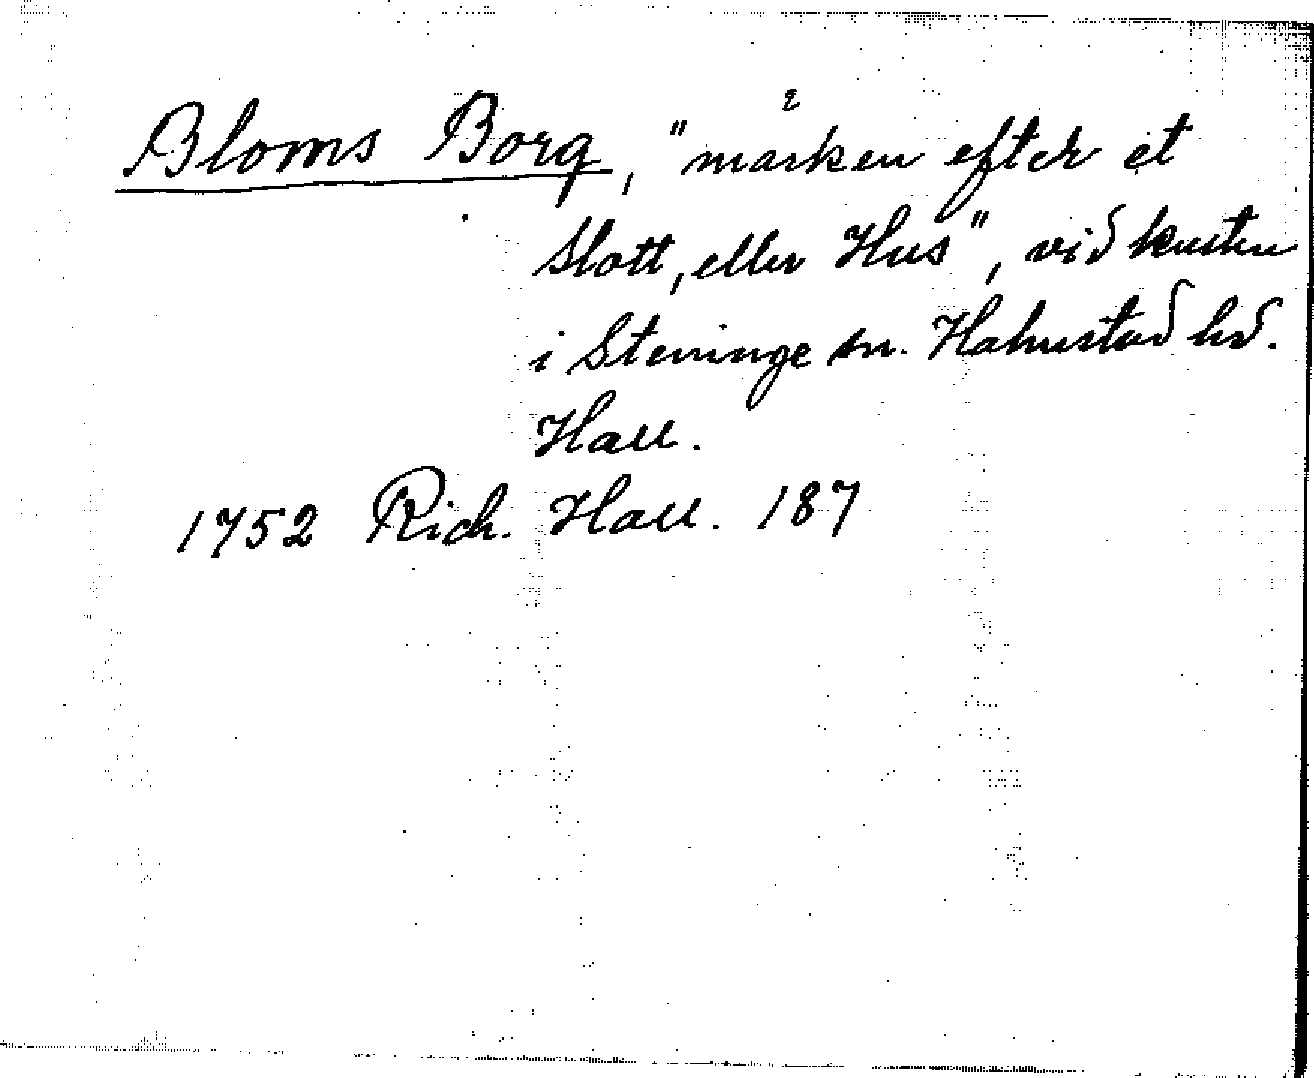 Bloms Borg, "märken efter et
Slott, eller Hus", vid kusten
i Steninge sn. Halmstad hd.
Hall.
1752 Rich. Hall. 187